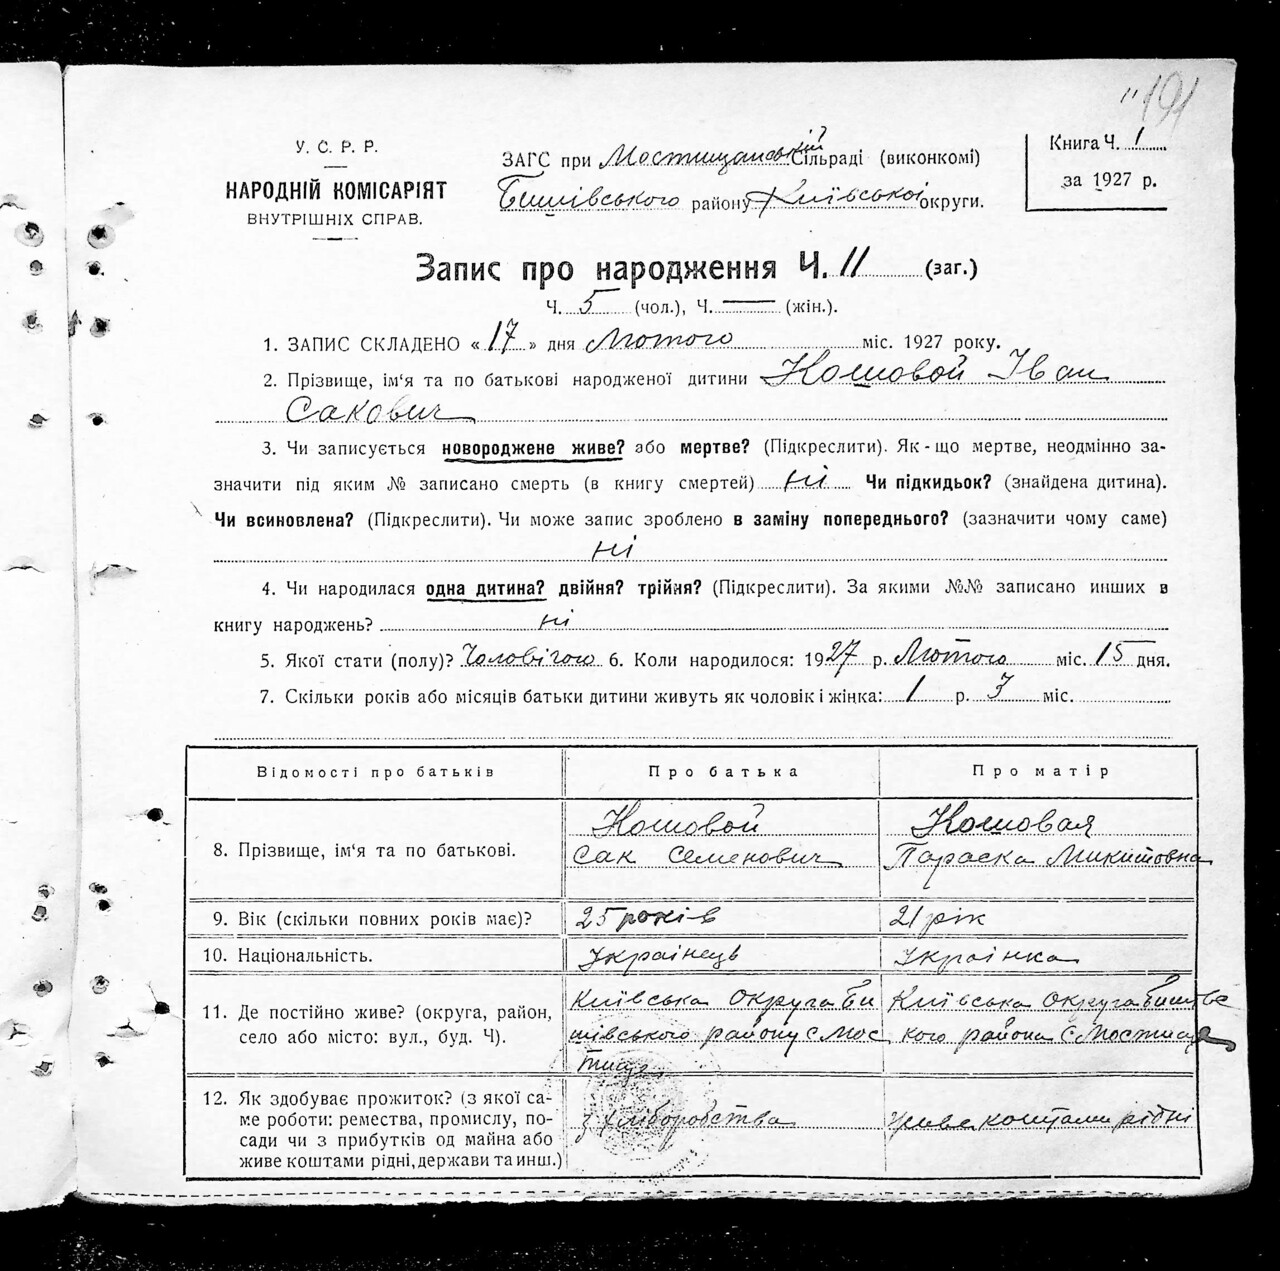 191
У. С. Р. Р.
НАРОДНІЙ КОМІСАРІЯТ
ВНУТРІШНІХ СПРАВ.
ЗАГС при Мостищанській Сільраді (виконкомі)
Бишівського району Київської округи.
Книга Ч. 1
за 1927 р.
Запис про народження Ч. 11 (заг.)
Ч. 5 (чол.), Ч. — (жін.).
1. ЗАПИС СКЛАДЕНО « 17 » дня Лютого міс. 1927 року.
2. Прізвище, ім'я та по батькові народженої дитини Кошовой Іван
Сакович
3. Чи записується новороджене живе? або мертве? (Підкреслити). Як-що мертве, неодмінно за-
значити під яким № записано смерть (в книгу смертей) ні Чи підкидьок? (знайдена дитина).
Чи всиновлена? (Підкреслити). Чи може запис зроблено в заміну попереднього? (зазначити чому саме)
ні
4. Чи народилася одна дитина? двійня? трійня? (Підкреслити). За якими №№ записано инших в
книгу народжень? ні
5. Якої стати (полу)? Чоловічого 6. Коли народилося: 1927 р. Лютого міс. 15 дня.
7. Скільки років або місяців батьки дитини живуть як чоловік і жінка: 1 р. 3 міс.
Відомості про батьків Про батька Про матір
8. Прізвище, ім'я та по батькові. Кошовой Сак Семенович Кошовая Параска Микитовна
9. Вік (скільки повних років має)? 25 років 21 рік
10. Національність. Українець Українка
11. Де постійно живе? (округа, район, Київська округа Би Київська округа Бишівс
село або місто: вул., буд. Ч). шівського району с Мос кого района с Мостище
тище
12. Як здобуває прожиток? (з якої са-
ме роботи: ремества, промислу, по- з хліборобства живе коштами рідні
сади чи з прибутків од майна або
живе коштами рідні, держави та инш.)